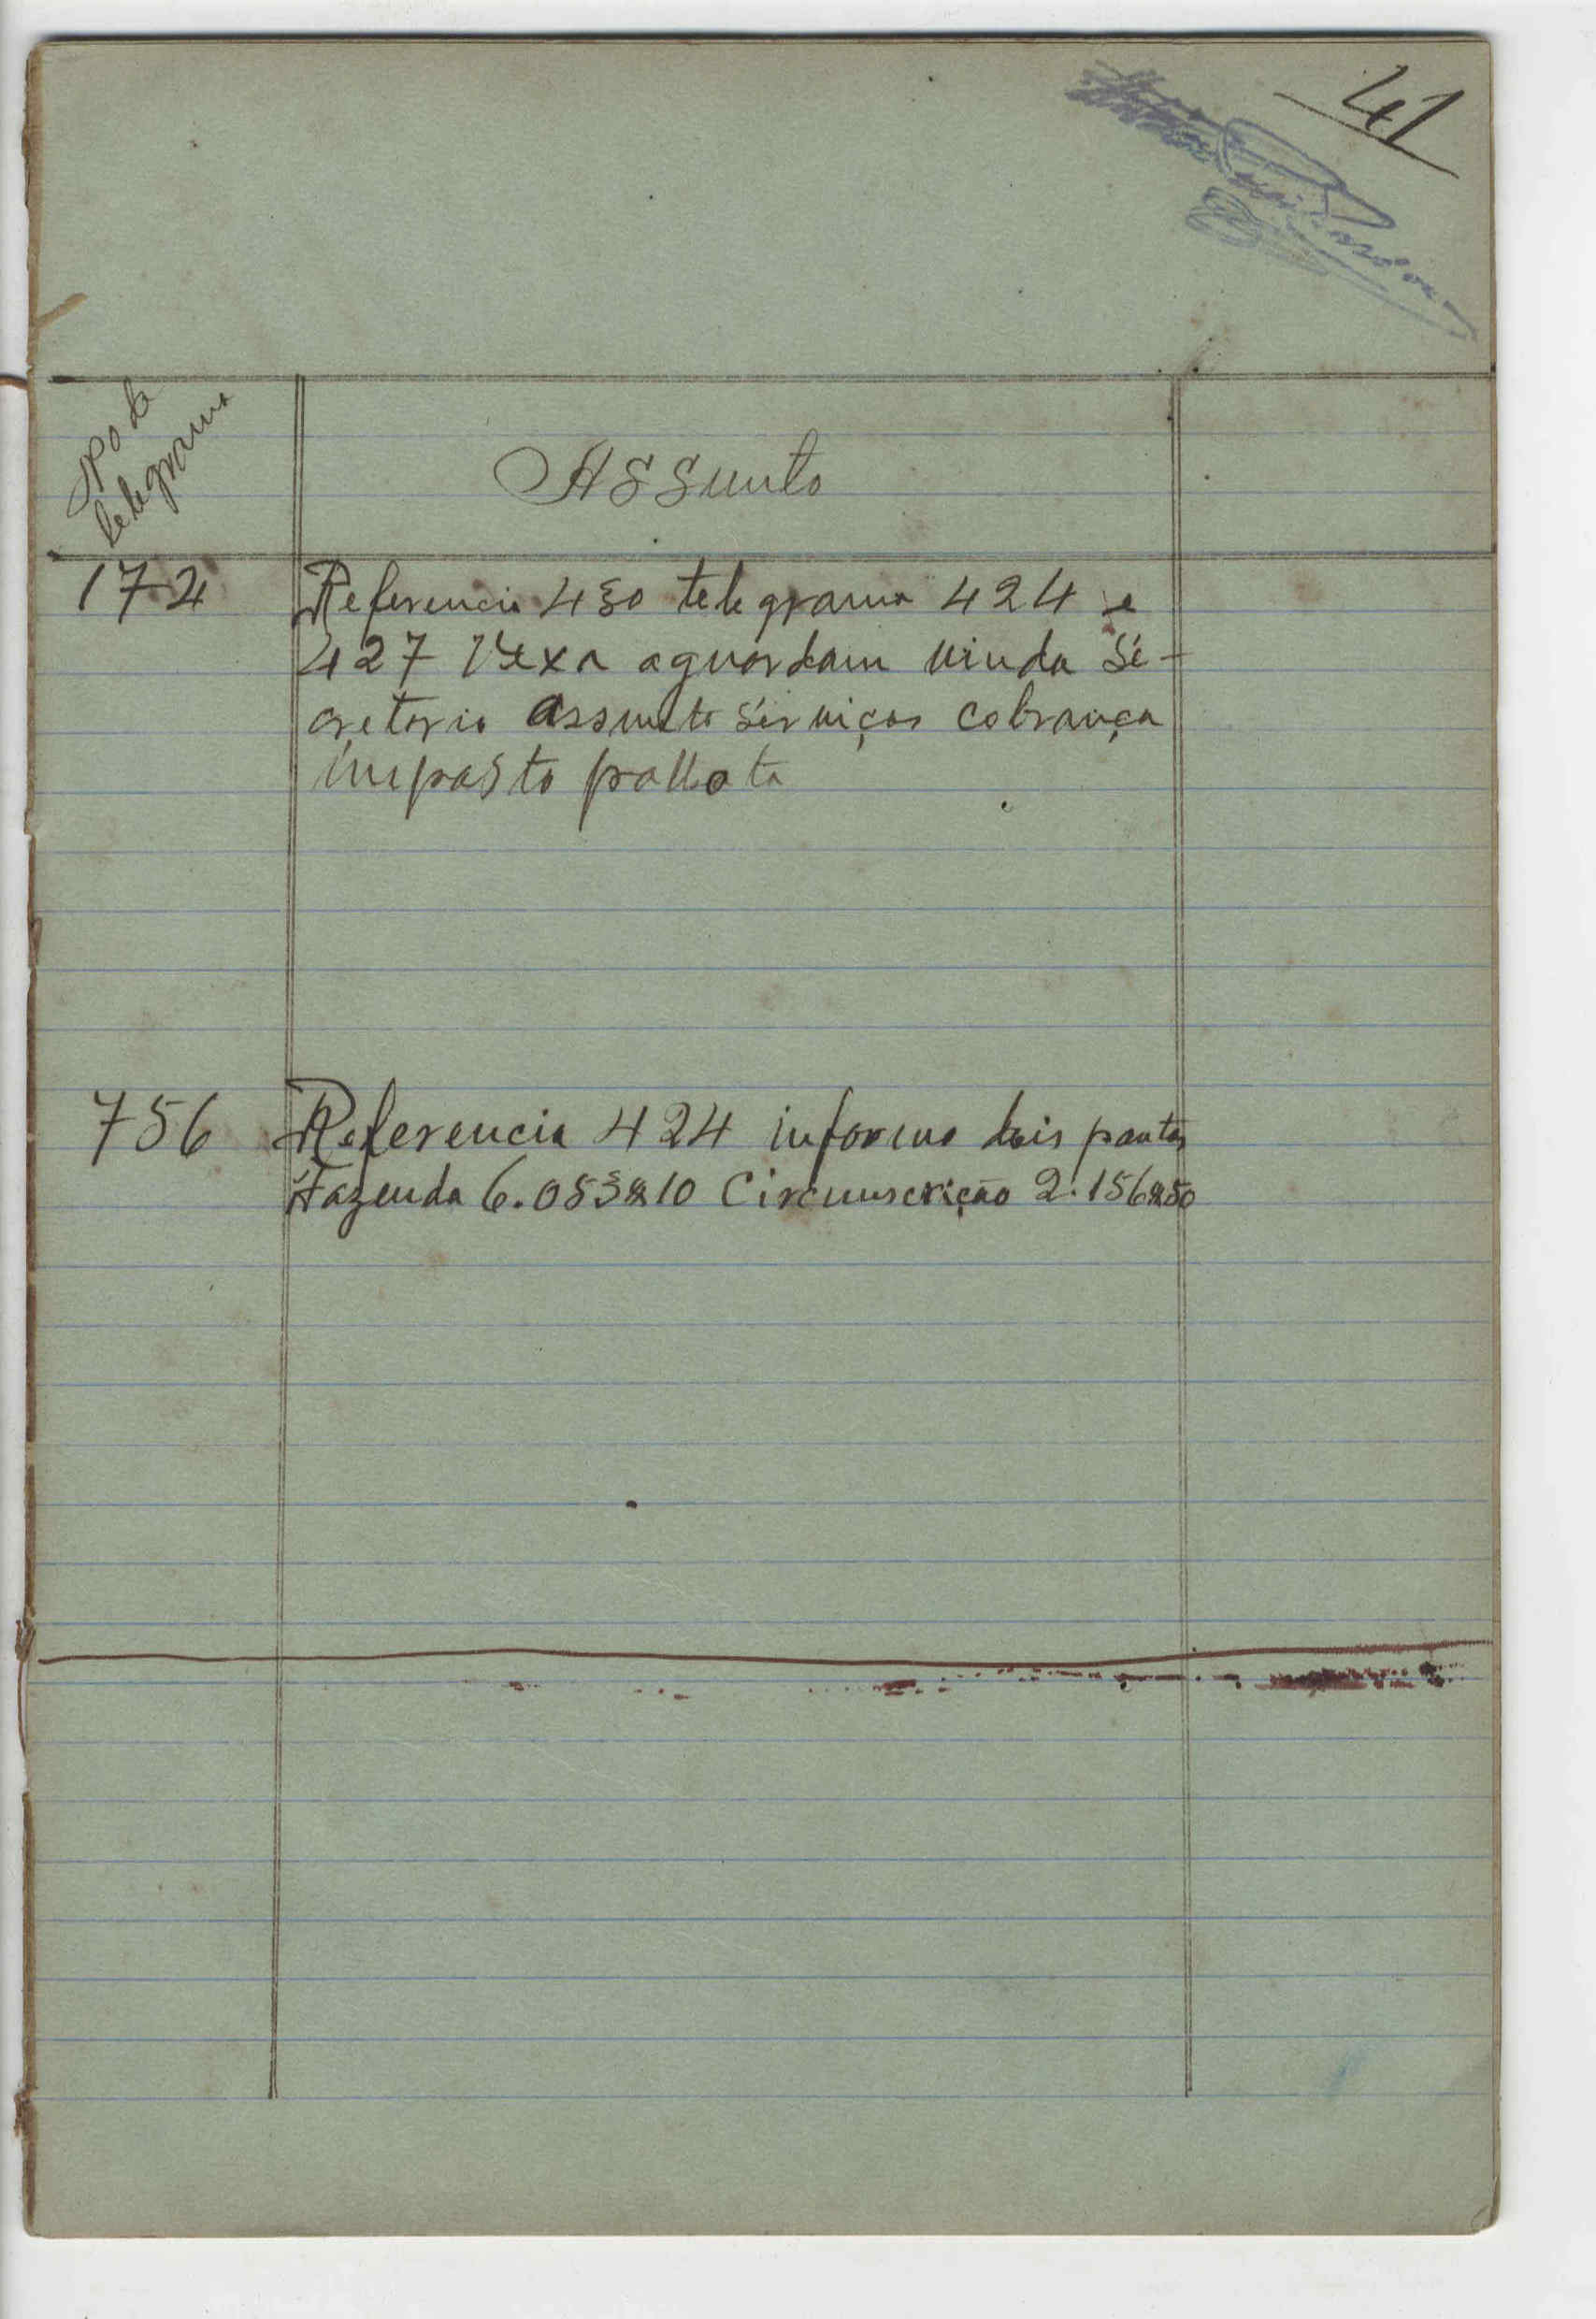 41
Nº do
telegrama
Assunto
172 Referencia 430 telegrama 424 e
427 Vexa aguardam vinda se-
cretario assunto serviços cobrança
imposto palhota
756 Referencia 424 informo dois pontos
Fazenda 6.053$10 Circunscrição 2.156$50